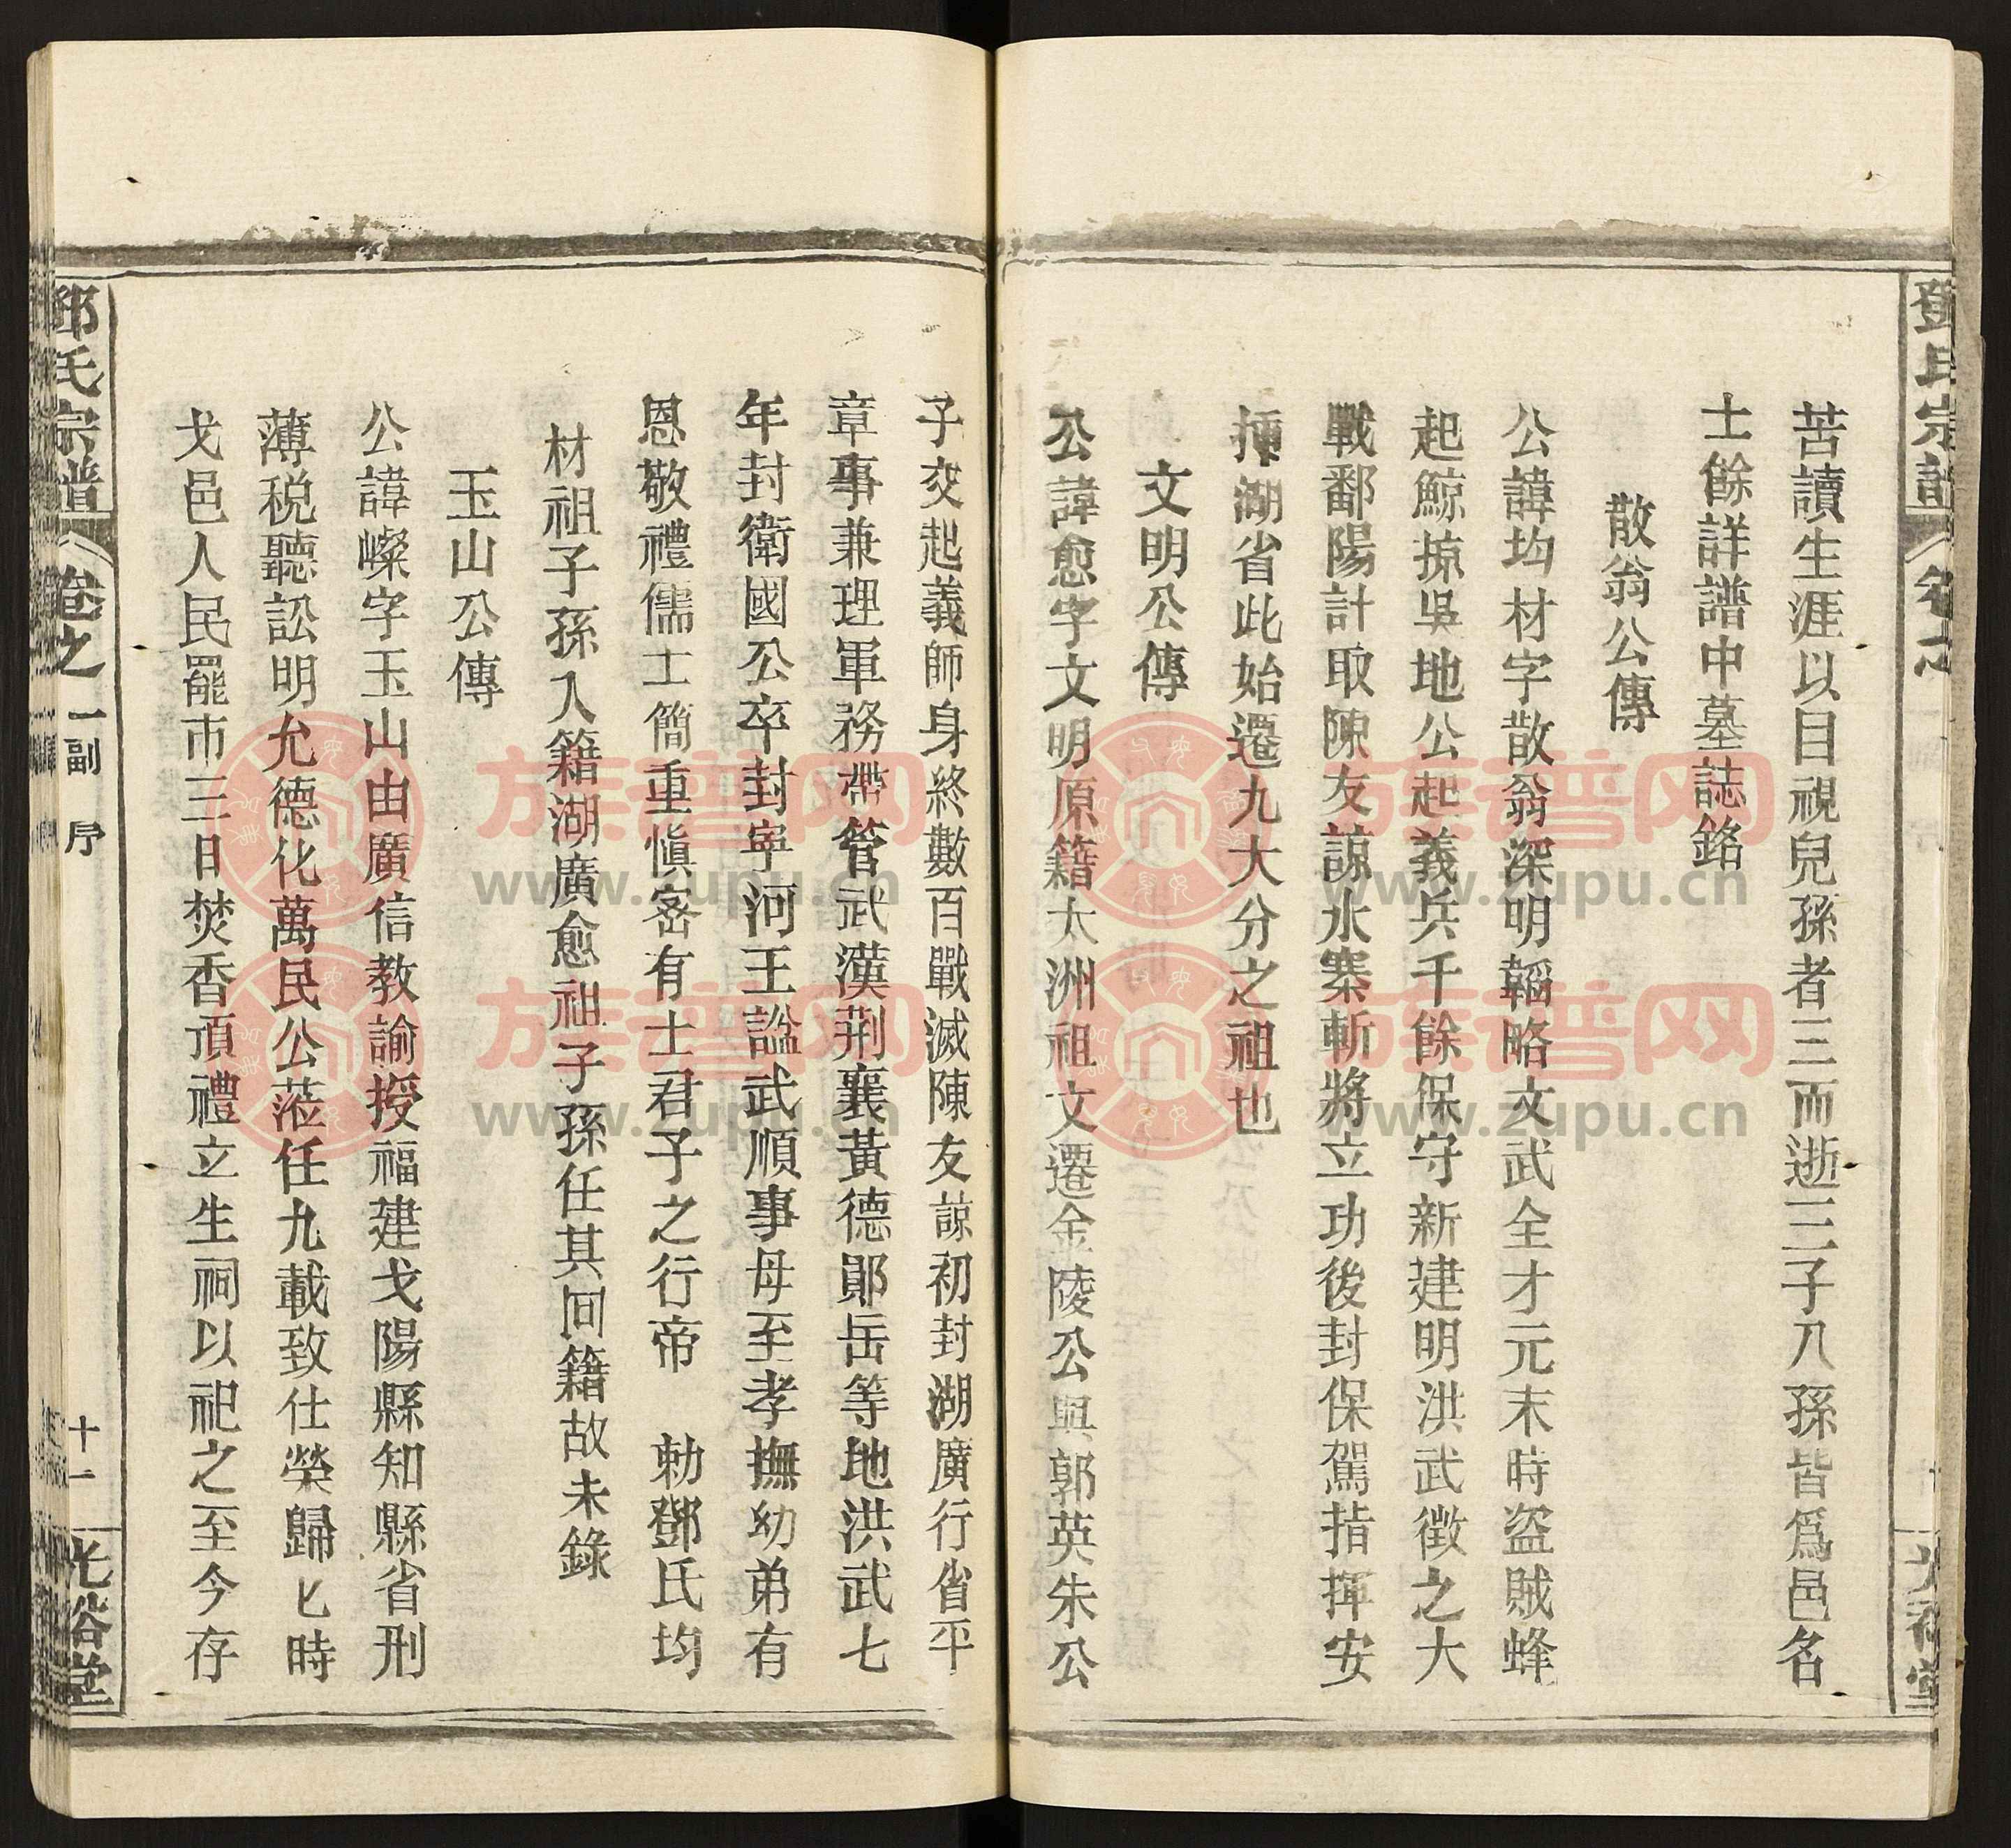 鄧氏宗譜
苦讀生涯以目視兒孫者三而逝三子八孫皆爲邑名
士餘詳譜中墓誌銘
散翁公傳
公諱均材字散翁深明韜略文武全才元末時盜賊蜂
起鯨掠吳地公起義兵千餘保守新建明洪武徵之大
戰鄱陽計取陳友諒水寨斬將立功後封保駕指揮安
湖省此始遷九大分之祖也
文明公傳
公諱愈字文明原籍太洲祖文遷金陵公與郭英朱公
子交起義師身終數百戰滅陳友諒初封湖廣行省平
章事兼理軍務帶管武漢荆襄黃德鄖岳等地洪武七
年封衛國公卒封寧河王諡武順事母至孝撫幼弟有
恩敬禮儒士簡重愼密有士君子之行帝 勅鄧氏均
材祖子孫入籍湖廣愈祖子孫任其回籍故未錄
玉山公傳
公諱嶫字玉山由廣信教諭授福建戈陽縣知縣省刑
薄税聽訟明允德化萬民公蒞任九載致仕榮歸匕時
戈邑人民罷市三日焚香頂禮立生祠以祀之至今存
鄧氏宗譜
卷之一副
序
十一
光裕堂
族譜网
www.zupu.cn
族譜网
www.zupu.cn
族譜网
www.zupu.cn
族譜网
www.zupu.cn